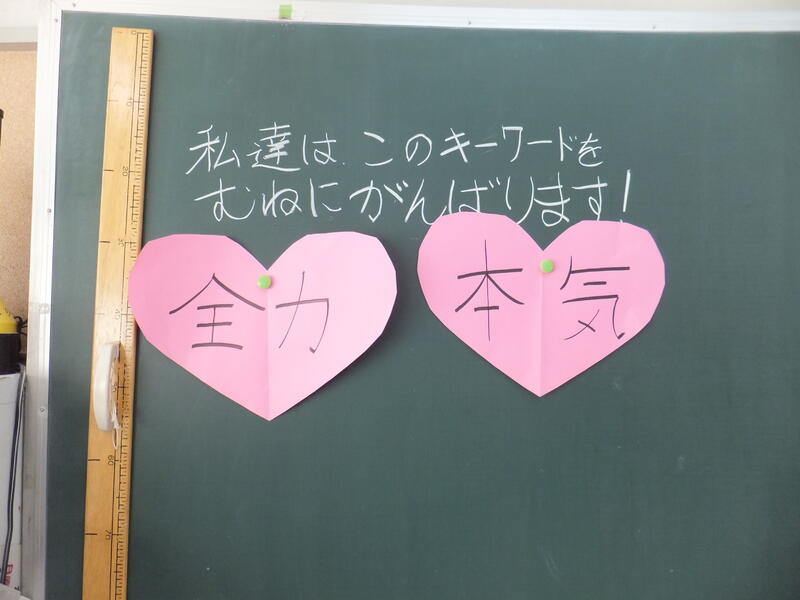 私達は、このキーワードを
むねにがんばります!
全力
本気
10
20
60
70